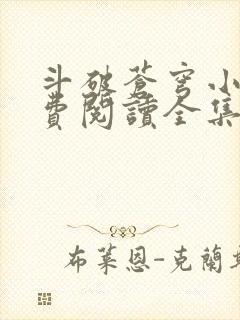 斗破蒼穹小
費閱讀全集
布萊恩-克蘭